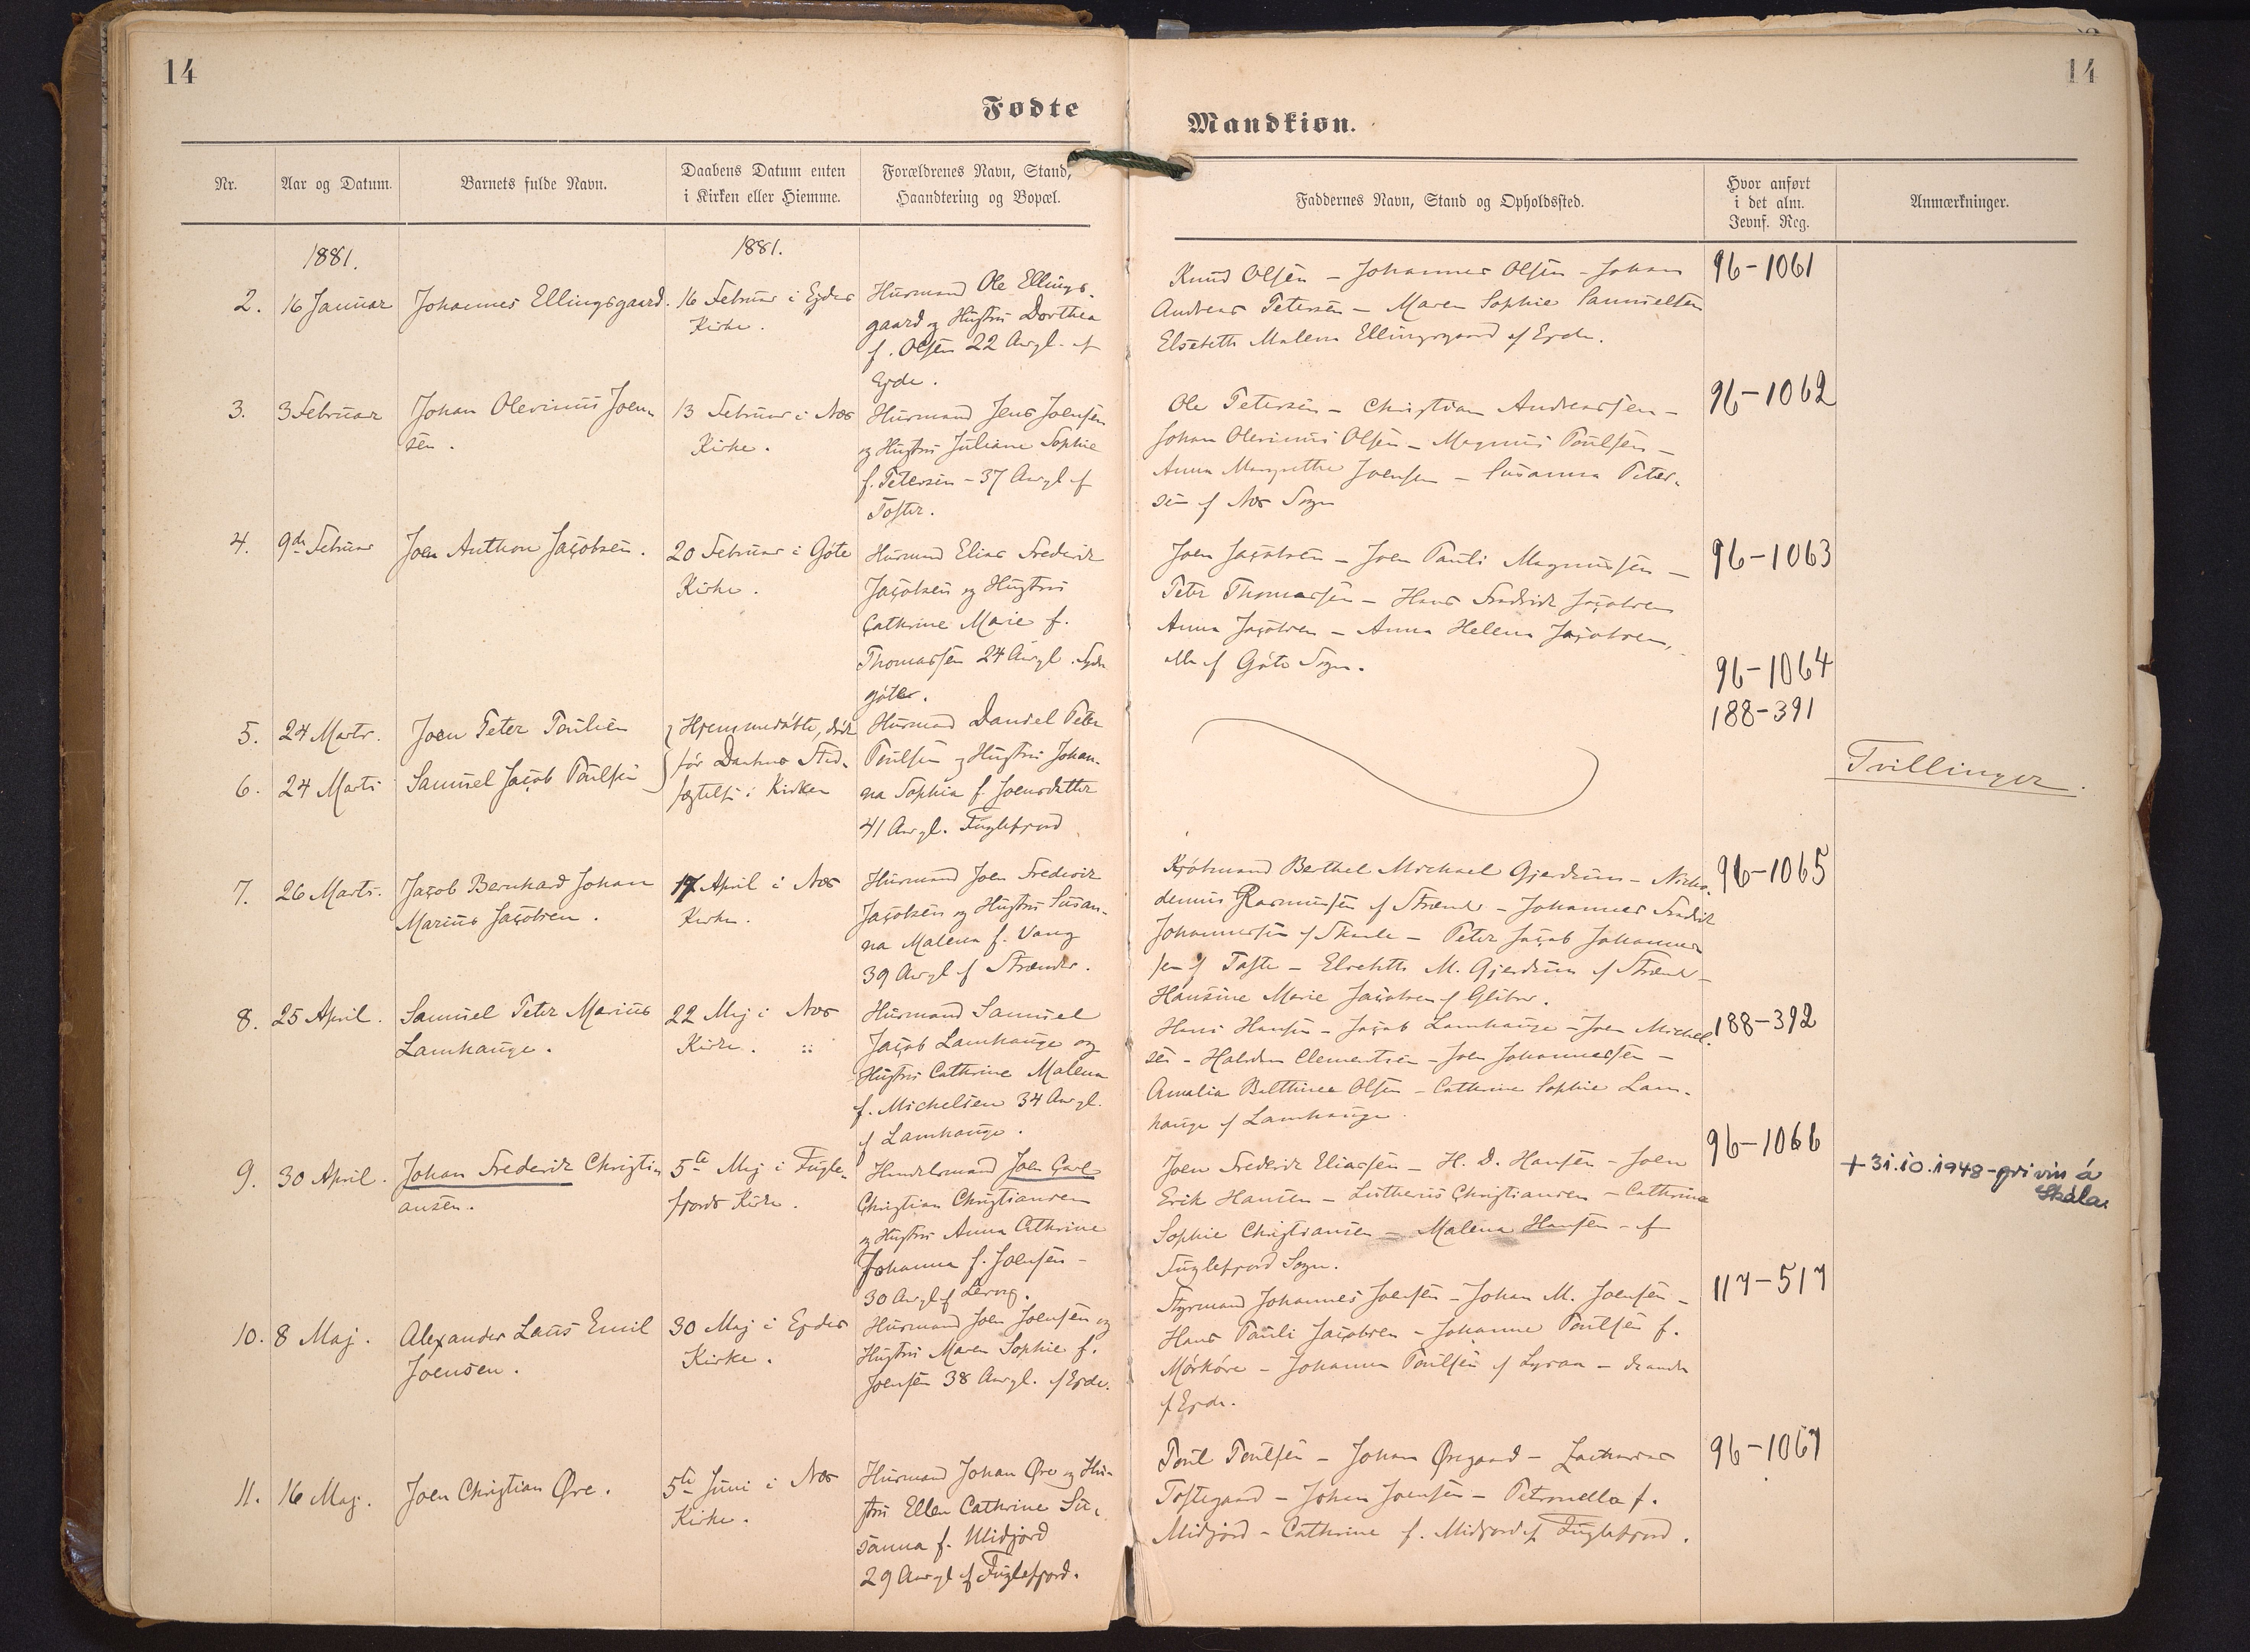 14
14
Fødte
Mandkiøn.
Nr.
Aar og Datum.
Barnets fulde Navn.
Daabens Datum enten
i Kirken eller Hiemme.
Forældrenes Navn, Stand,
Haandtering og Bopæl.
Faddernes Navn, Stand og Opholdssted.
Hvor anført
i det alm.
Jevnf. Reg.
Anmærkninger.
1881.
1881.
2.
16 Januar
Johannes Ellingsgaard.
16 Februar i Ejdes
Kirke.
Husmand Ole Ellings-
gaard og Hustru Dorthea
f. Olsen 22 Aar gl. af
Ejde.
Knud Olsen - Johannes Olsen - Johan
Andreas Petersen - Maren Sophie Samuelsen
Elsebeth Malena Ellingsgaard af Ejde.
96-1061
3.
3 Februar
Johan Olevinus Joen-
sen.
13 Februar i Næs
Kirke.
Husmand Jens Joensen
og Hustru Juliane Sophie
f. Petersen - 37 Aar gl af
Tofter.
Ole Petersen - Christian Andreassen -
Johan Olevinus Olsen - Magnus Poulsen -
Anna Margrethe Joensen - Susanna Peter-
sen af Næs Sogn
96-1062
4.
9de Februar
Joen Anthon Jacobsen.
20 Februar i Gøte
Kirke.
Husmand Elias Frederik
Jacobsen og Hustru
Cathrine Marie f.
Thomassen 24 Aar gl. Sydre
gøte.
Joen Jacobsen - Joen Pauli Magnussen -
Peter Thomassen - Hans Fredrik Jacobsen
Anna Jacobsen - Anna Helena Jacobsen,
alle af Gøte Sogn.
96-1063
96-1064
188-391
5.
24 Marts.
Joen Peter Poulsen
6.
24 Marts
Samuel Jacob Poulsen
Hjemmedøbte, døde
før Daabens Stad-
fæstelse i Kirken
Husmand Daniel Peter
Poulsen og Hustru Johan-
na Sophia f. Joensdatter
41 Aar gl. Fuglefjord
Tvillinger.
7.
26 Marts.
Jacob Bernhard Johan
Marius Jacobsen.
17 April i Næs
Kirke.
Husmand Joen Frederik
Jacobsen og Hustru Susan-
na Malena f. Vang
39 Aar gl af Strænder.
Kjøbmand Berthel Michael Gjerdrum - Nicho-
demus Rasmussen af Strænder - Johannes Fredrik
Johannessen af Skaale - Peter Jacob Johannes
sen af Tofte - Elsebeth M. Gjerdrum af Strænder -
Hansine Marie Jacobsen af Glibre.
96-1065
8.
25 April.
Samuel Peter Marius
Lamhauge.
22 Maj i Næs
Kirke.
Husmand Samuel
Jacob Lamhauge og
Hustru Cathrine Malena
f. Michelsen 34 Aar gl.
af Lamhauge.
Hans Hansen - Jacob Lamhauge - Joen Michel-
sen - Halvdan Clementsen - Joen Johannessen -
Amalia Olsen - Cathrine Sophie Lam-
hauge af Lamhauge.
188-392
9.
30 April.
Johan Frederik Christi-
ansen.
5te Maj i Fugle-
fjords Kirke.
Handelsmand Joen Carl
Christian Christiansen
og Hustru Anna Cathrine
Johanna f. Joensen -
30 Aar gl af Lervig.
Joen Frederik Eliassen - H. D. Hansen - Joen
Erik Hansen - Lutherus Christiansen - Cathrine
Sophie Christiansen - Malena Hansen - af
Fuglefjord Sogn.
96-1066
+ 31.10.1948 - grivin á
Skála.
10.
8 Maj.
Alexander Laus Emil
Joensen.
30 Maj i Ejdes
Kirke.
Husmand Joen Joensen og
Hustru Maren Sophie f.
Joensen 38 Aar gl. af Ejde.
Styrmand Johannes Joensen - Johan M. Joensen -
Hans Pauli Jacobsen - Johanne Poulsen f.
Mørkøre - Johanna Poulsen af - de andre
af Ejde.
117-517
11.
16 Maj.
Joen Christian Øre.
5te Juni i Næs
Kirke.
Husmand Johan Øre og Hu-
stru Ellen Cathrine Su-
sanna f. Midjord
29 Aar gl af Fuglefjord.
Poul Poulsen - Johan Øregaard - Zacharias
Toftegaard - Johan Joensen - Petronella f.
Midjord - Cathrine f. Midjord af Fuglefjord.
96-1067